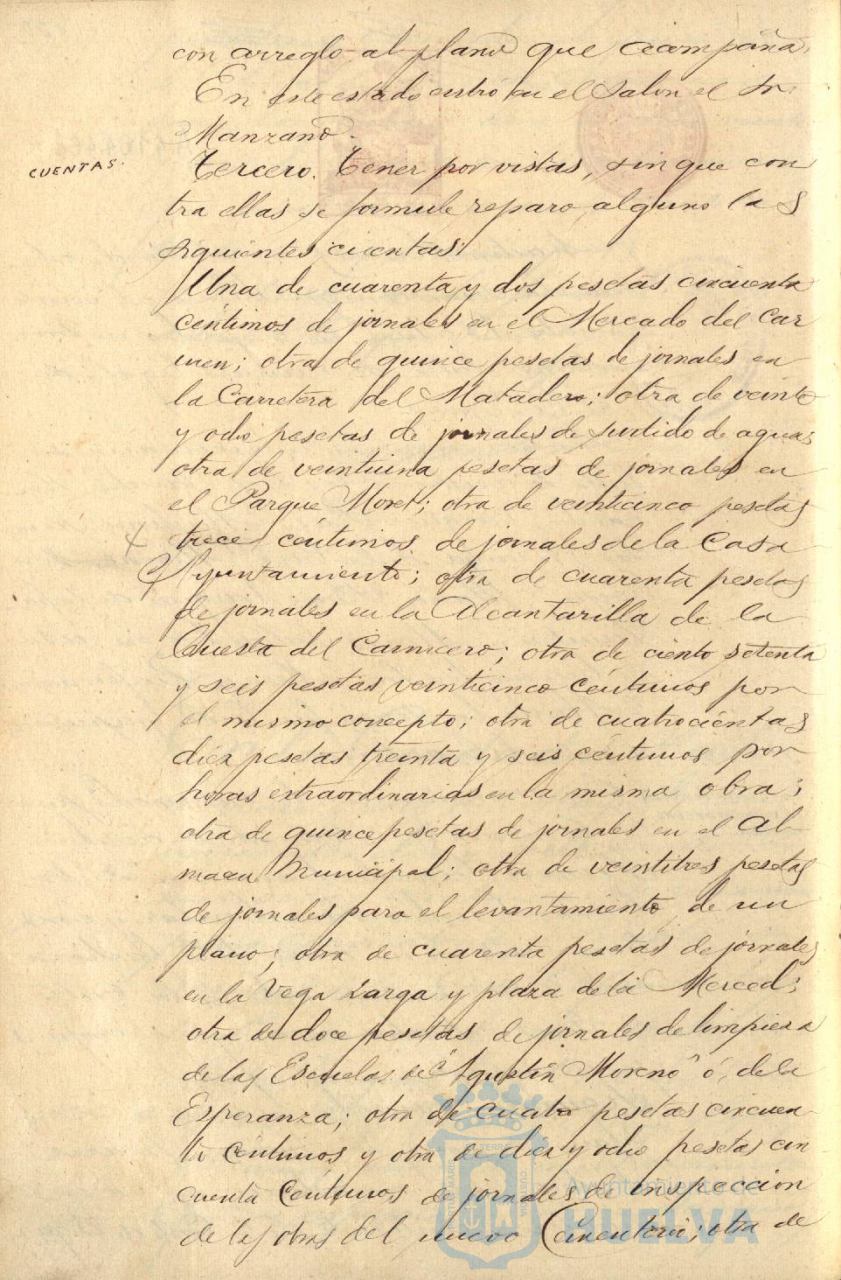 con arreglo al plano que acompaña.
En este estado entró en el Salon el Sr.
Manzano.
CUENTAS.
Tercero. Tener por vistas, sin que con
tra ellas se formule reparo alguno las
siguientes cuentas:
Una de cuarenta y dos pesetas cincuenta
céntimos de jornales en el Mercado del Car
men; otra de quince pesetas de jornales en
la Carretera del Matadero; otra de veinte
y ocho pesetas de jornales de surtido de aguas
otra de veintiuna pesetas de jornales en
el Parque Moret; otra de veinticinco pesetas
trece céntimos de jornales de la Casa
Ayuntamiento; otra de cuarenta pesetas
de jornales en la Alcantarilla de la
Cuesta del Carnicero; otra de ciento setenta
y seis pesetas veinticinco céntimos por
el mismo concepto; otra de cuatrocientas
diez pesetas treinta y seis céntimos por
horas extraordinarias en la misma obra;
otra de quince pesetas de jornales en el Al
macen Municipal; otra de veintitres pesetas
de jornales para el levantamiento de un
plano; otra de cuarenta pesetas de jornales
en la Vega Larga y plaza de la Merced;
otra de doce pesetas de jornales de limpieza
de las Escuelas de "Agustin Moreno" ó de la
Esperanza; otra de cuatro pesetas cincuen
ta céntimos y otra de diez y ocho pesetas cin
cuenta céntimos de jornales de inspeccion
de las obras del nuevo Cementerio; otra de
Ayuntamiento de
HUELVA